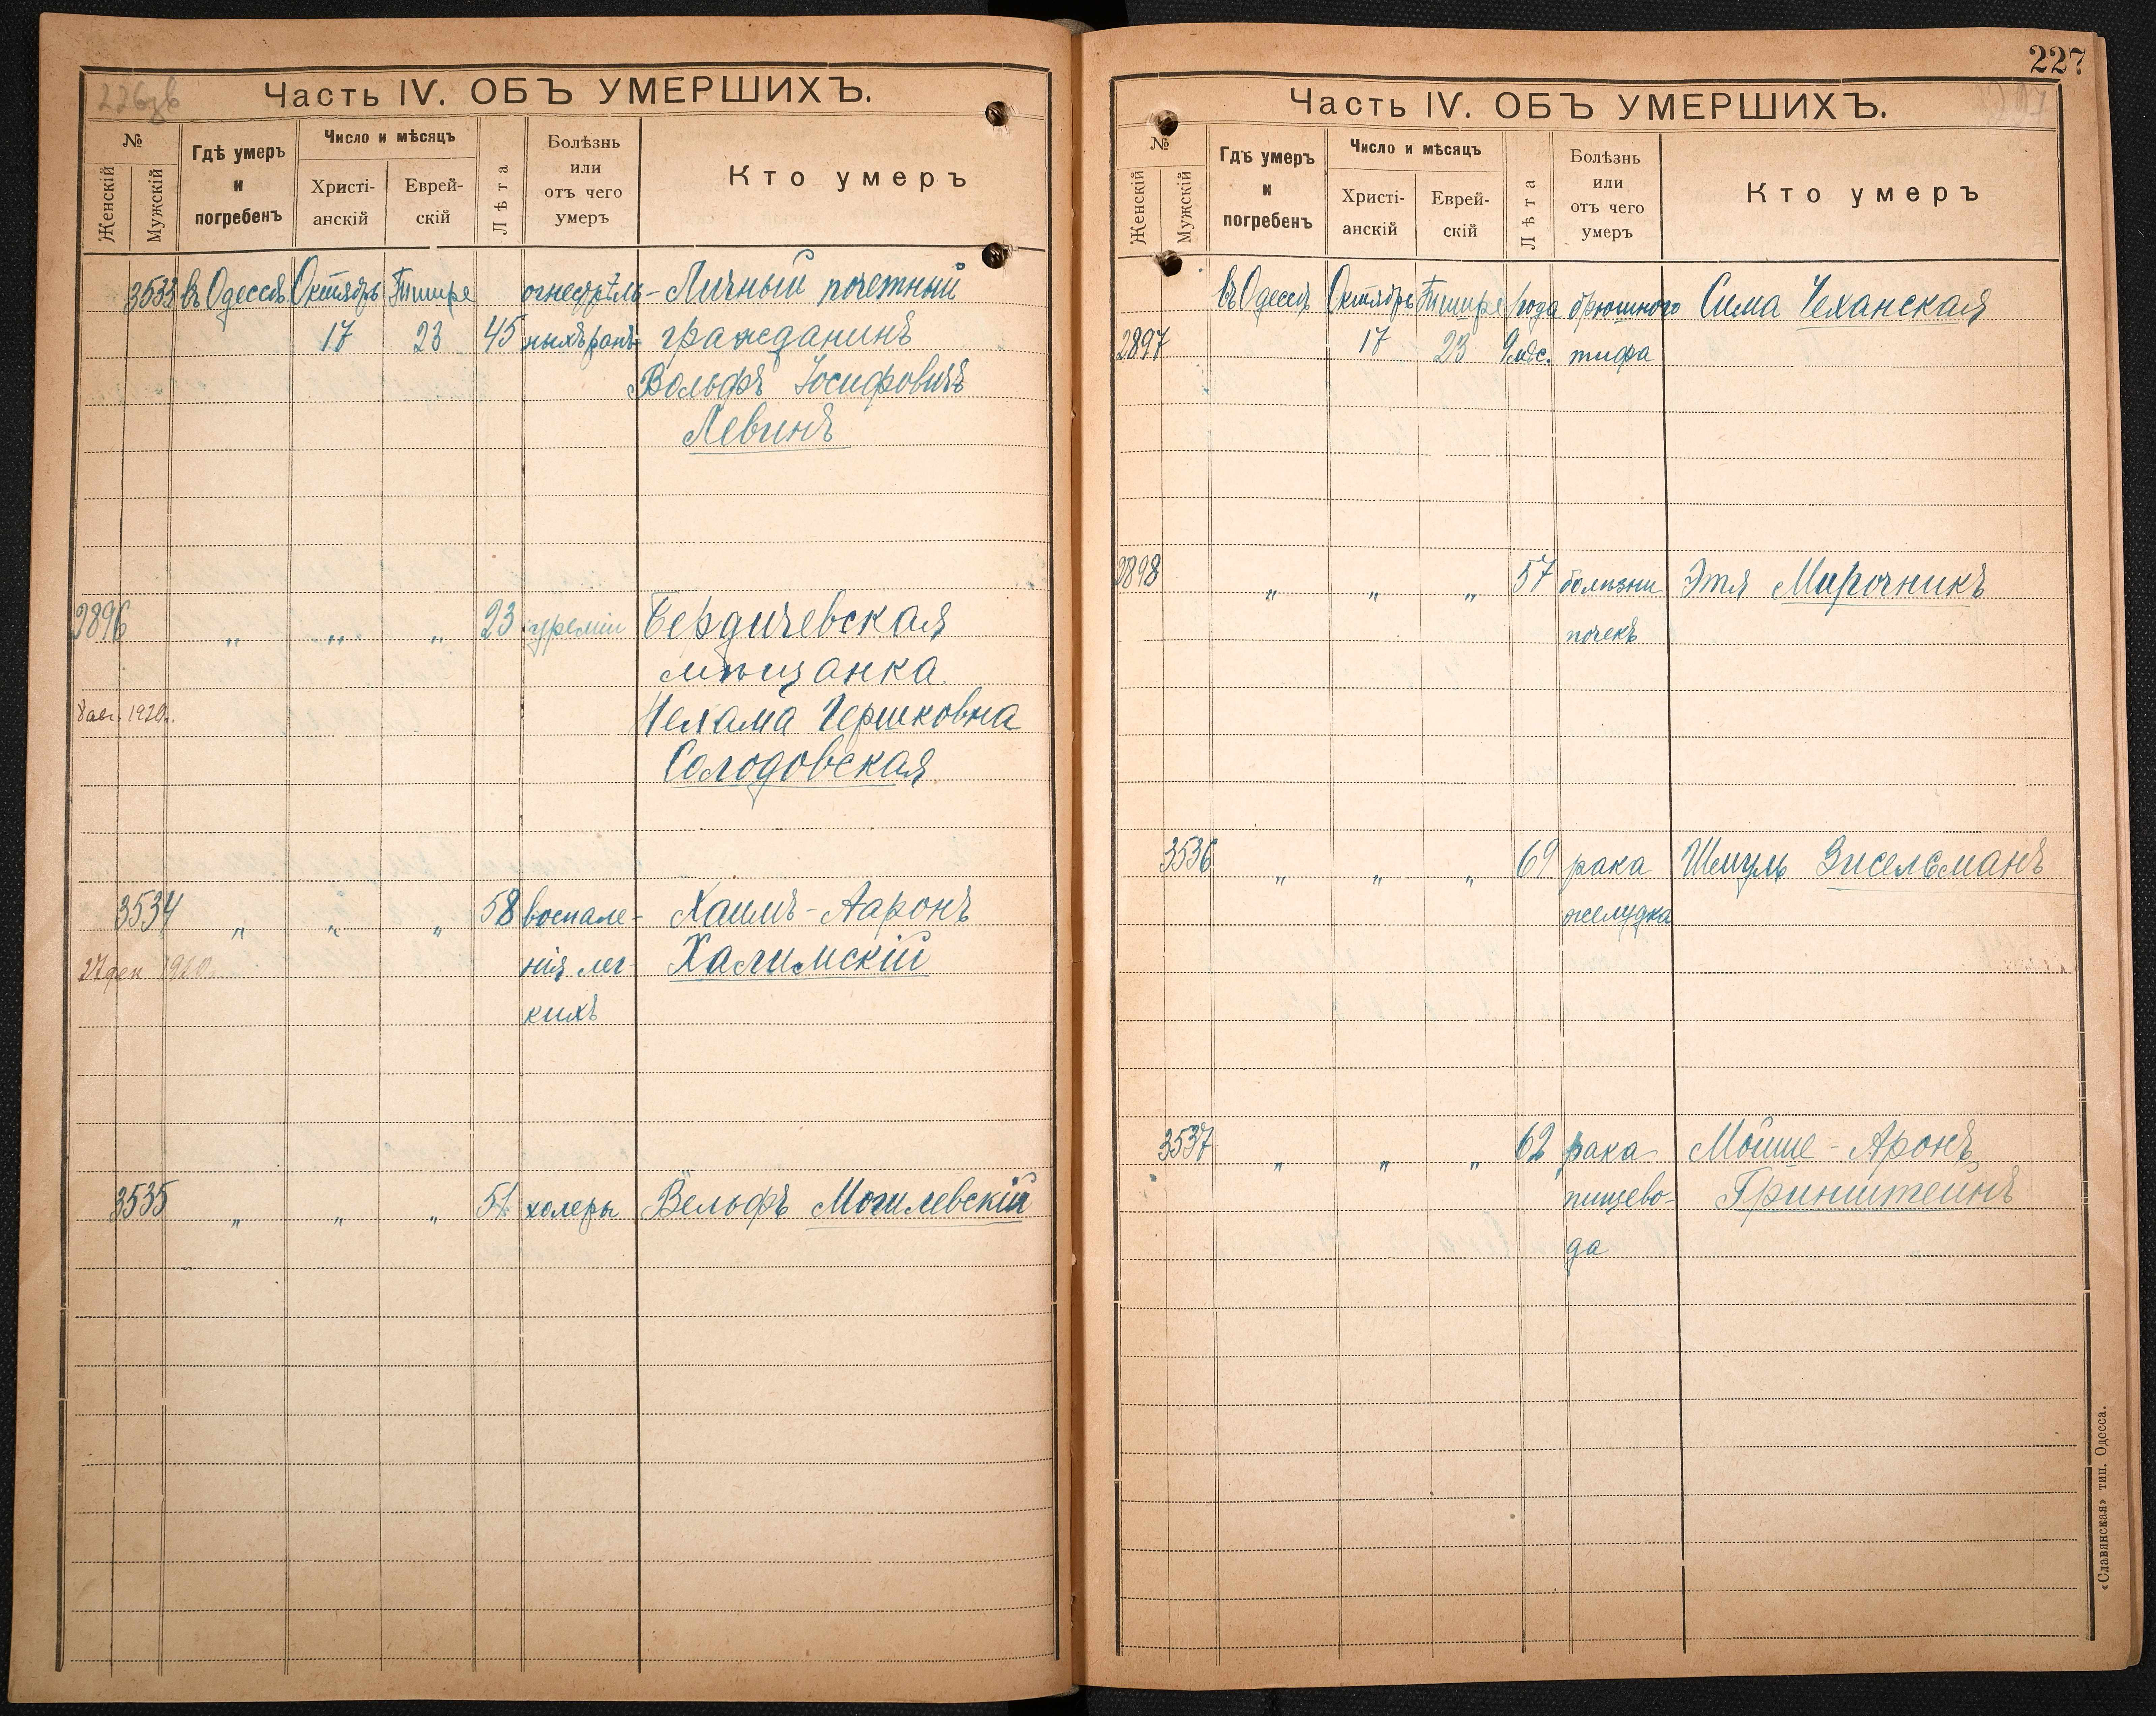 226зв
Часть IV. ОБЪ УМЕРШИХЪ.
№
Женскій
Мужскій
Гдѣ умеръ
и
погребенъ
Число и мѣсяцъ
Христі-
анскій
Еврей-
скій
Лѣта
Болѣзнь
или
отъ чего
умеръ
Кто умеръ
3533 въ Одессѣ Октябрь Тишре огнестрѣль- Личный почетный
17 23 45 ныхъ ранъ гражданинъ
Вольфъ Іосифовичъ
Левинъ
2896 „ „ „ 23 уреміи Бердичевская
мѣщанка
Нехама Гершковна
8 авг. 1920.
Солодовская
3534 „ „ „ 58 воспале- Хаимъ-Ааронъ
27 дек 1920. нія лег- Халимскій
кихъ
3535 „ „ „ 51 холеры Вельфъ Могилевскій
227
Часть IV. ОБЪ УМЕРШИХЪ.
№
Женскій
Мужскій
Гдѣ умеръ
и
погребенъ
Число и мѣсяцъ
Христі-
анскій
Еврей-
скій
Лѣта
Болѣзнь
или
отъ чего
умеръ
Кто умеръ
въ Одессѣ Октябрь Тишре 1 года брюшного Сима Чеханская
2897 17 23 9 мѣс. тифа
2898 „ „ „ 57 болѣзни Этя Мирочникъ
почекъ
3536 „ „ „ 69 рака Шмуль Зисельманъ
желудка
3537 „ „ „ 62 рака Мойше-Аронъ
пищево- Гринштейнъ
да
«Славянская» тип. Одесса.